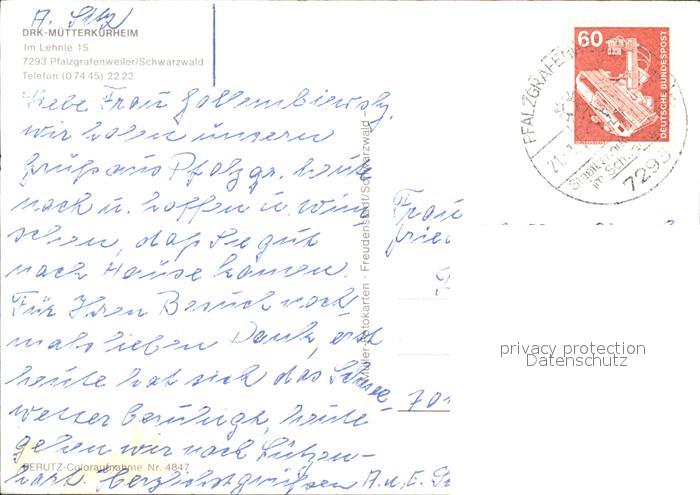 A. Silz
DRK-MÜTTERKURHEIM
Im Lehnle 15
7293 Pfalzgrafenweiler/Schwarzwald
Telefon (0 74 45) 22 22
Liebe Frau Gollembiewsky,
wir holen unseren
Gruß aus Pfalzgr. heute
nach u. hoffen u. wün
schen, daß Sie gut
nach Hause kamen.
Für Ihren Besuch noch
mals lieben Dank, erst
heute hat sich das Schnee
wetter beruhigt, heute
gehen wir nach Lützen-
hart. Herzlichst grüßen A. u. E.
BERUTZ-Coloraufnahme Nr. 4847
Müller-Fotokarten · Freudenstadt/Schwarzwald
60
DEUTSCHE BUNDESPOST
PFALZGRAFENW
21.
Staatl. an
im Schw
7293
Frau
Fried
701
privacy protection
Datenschutz